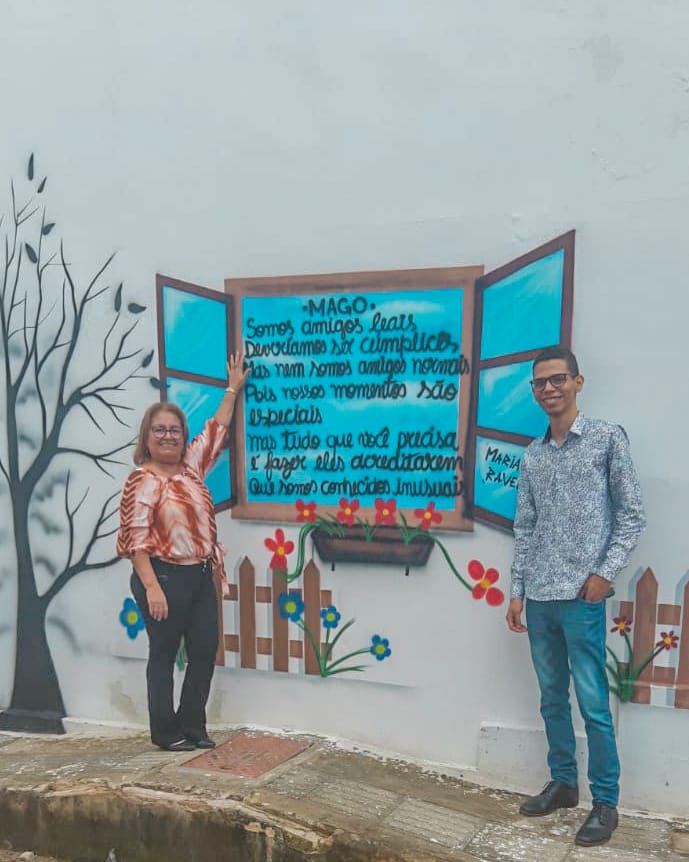 ·MAGO·
Somos amigos leais
Devoríamos ser cúmplices
Mas nem somos amigos normais
Pois nossos momentos são
especiais
Mas tudo que você precisa
é fazer eles acreditarem
Que somos conhecidos inusuais
MARIA
RAVE